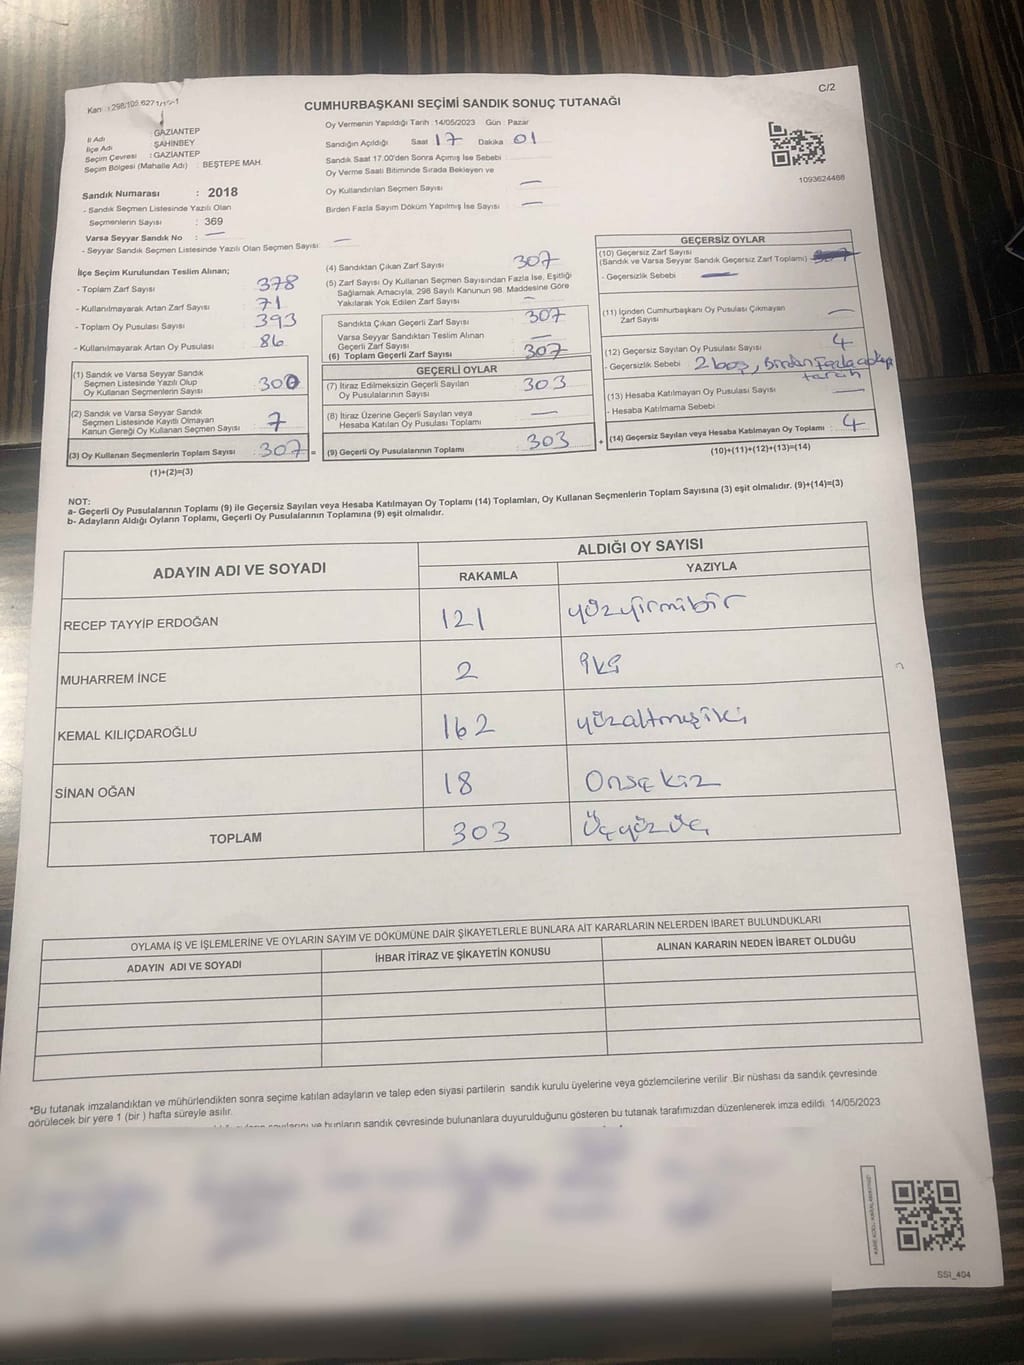 C/2
CUMHURBAŞKANI SEÇİMİ SANDIK SONUÇ TUTANAĞI
İl Adı : GAZİANTEP
İlçe Adı : ŞAHİNBEY
Seçim Çevresi : GAZİANTEP
Seçim Bölgesi (Mahalle Adı) : BEŞTEPE MAH.
Sandık Numarası : 2018
- Sandık Seçmen Listesinde Yazılı Olan
Seçmenlerin Sayısı : 369
Varsa Seyyar Sandık No : —
- Seyyar Sandık Seçmen Listesinde Yazılı Olan Seçmen Sayısı: —
Oy Vermenin Yapıldığı Tarih : 14/05/2023 Gün : Pazar
Sandığın Açıldığı Saat 17 Dakika 01
Sandık Saat 17.00'den Sonra Açımış İse Sebebi :
Oy Verme Saati Bitiminde Sırada Bekleyen ve
Oy Kullandırılan Seçmen Sayısı —
Birden Fazla Sayım Döküm Yapılmış İse Sayısı : —
1093624488
İlçe Seçim Kurulundan Teslim Alınan;
- Toplam Zarf Sayısı : 378
- Kullanılmayarak Artan Zarf Sayısı : 71
- Toplam Oy Pusulası Sayısı : 393
- Kullanılmayarak Artan Oy Pusulası : 86
(1) Sandık ve Varsa Seyyar Sandık
Seçmen Listesinde Yazılı Olup
Oy Kullanan Seçmenlerin Sayısı : 300
(2) Sandık ve Varsa Seyyar Sandık
Seçmen Listesinde Kayıtlı Olmayan
Kanun Gereği Oy Kullanan Seçmen Sayısı : 7
(3) Oy Kullanan Seçmenlerin Toplam Sayısı : 307 =
(1)+(2)=(3)
(4) Sandıktan Çıkan Zarf Sayısı : 307
(5) Zarf Sayısı Oy Kullanan Seçmen Sayısından Fazla İse, Eşitliği
Sağlamak Amacıyla, 298 Sayılı Kanunun 98. Maddesine Göre
Yakılarak Yok Edilen Zarf Sayısı : —
Sandıkta Çıkan Geçerli Zarf Sayısı : 307
Varsa Seyyar Sandıktan Teslim Alınan
Geçerli Zarf Sayısı : —
(6) Toplam Geçerli Zarf Sayısı : 307
GEÇERLİ OYLAR
(7) İtiraz Edilmeksizin Geçerli Sayılan
Oy Pusulalarının Sayısı : 303
(8) İtiraz Üzerine Geçerli Sayılan veya
Hesaba Katılan Oy Pusulası Toplamı : —
(9) Geçerli Oy Pusulalarının Toplamı : 303 +
GEÇERSİZ OYLAR
(10) Geçersiz Zarf Sayısı
(Sandık ve Varsa Seyyar Sandık Geçersiz Zarf Toplamı) :
- Geçersizlik Sebebi : —
(11) İçinden Cumhurbaşkanı Oy Pusulası Çıkmayan
Zarf Sayısı : —
(12) Geçersiz Sayılan Oy Pusulası Sayısı : 4
- Geçersizlik Sebebi : 2 boş, Birden fazla
tercih
(13) Hesaba Katılmayan Oy Pusulası Sayısı : —
- Hesaba Katılmama Sebebi :
(14) Geçersiz Sayılan veya Hesaba Katılmayan Oy Toplamı : 4
(10)+(11)+(12)+(13)=(14)
NOT:
a- Geçerli Oy Pusulalarının Toplamı (9) ile Geçersiz Sayılan veya Hesaba Katılmayan Oy Toplamı (14) Toplamları, Oy Kullanan Seçmenlerin Toplam Sayısına (3) eşit olmalıdır. (9)+(14)=(3)
b- Adayların Aldığı Oyların Toplamı, Geçerli Oy Pusulalarının Toplamına (9) eşit olmalıdır.
ADAYIN ADI VE SOYADI
ALDIĞI OY SAYISI
RAKAMLA YAZIYLA
RECEP TAYYİP ERDOĞAN 121 yüzyirmibir
MUHARREM İNCE 2 iki
KEMAL KILIÇDAROĞLU 162 yüzaltmışiki
SİNAN OĞAN 18 Onsekiz
TOPLAM 303 Üçyüzüç
OYLAMA İŞ VE İŞLEMLERİNE VE OYLARIN SAYIM VE DÖKÜMÜNE DAİR ŞİKAYETLERLE BUNLARA AİT KARARLARIN NELERDEN İBARET BULUNDUKLARI
ADAYIN ADI VE SOYADI İHBAR İTİRAZ VE ŞİKAYETİN KONUSU ALINAN KARARIN NEDEN İBARET OLDUĞU
*Bu tutanak imzalandıktan ve mühürlendikten sonra seçime katılan adayların ve talep eden siyasi partilerin sandık kurulu üyelerine veya gözlemcilerine verilir .Bir nüshası da sandık çevresinde
görülecek bir yere 1 (bir ) hafta süreyle asılır.
ve bunların sandık çevresinde bulunanlara duyurulduğunu gösteren bu tutanak tarafımızdan düzenlenerek imza edildi. 14/05/2023
SSI_404